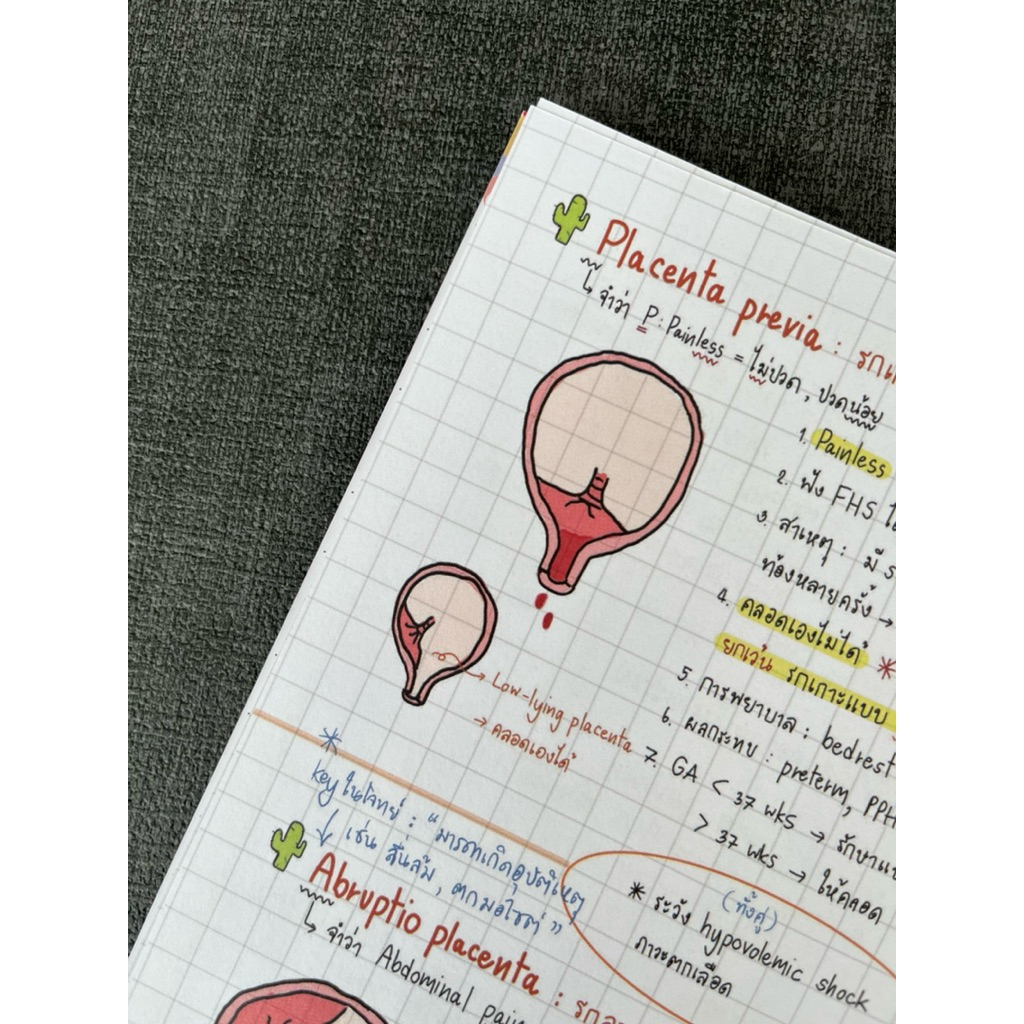 Placenta previa : รกเ
↳ จำว่า P : Painless = ไม่ปวด , ปวดน้อย
1. Painless
2. ฟัง FHS ได้
3. สาเหตุ : มี
ท้องหลายครั้ง →
4. คลอดเองไม่ได้ *
ยกเว้น รกเกาะแบบ
5. การพยาบาล : bedrest
6. ผลกระทบ : preterm, PPH
7. GA < 37 wks → รักษาแบ
> 37 wks → ให้คลอด
→ Low-lying placenta
→ คลอดเองได้
* key ในโจทย์ : “มารดาเกิดอุบัติเหตุ
↓ เช่น ลื่นล้ม , ตกมอไซต์ ”
(ทั้งคู่)
* ระวัง hypovolemic shock
ภาวะตกเลือด
Abruptio placenta : รกล
↳ จำว่า Abdominal pain